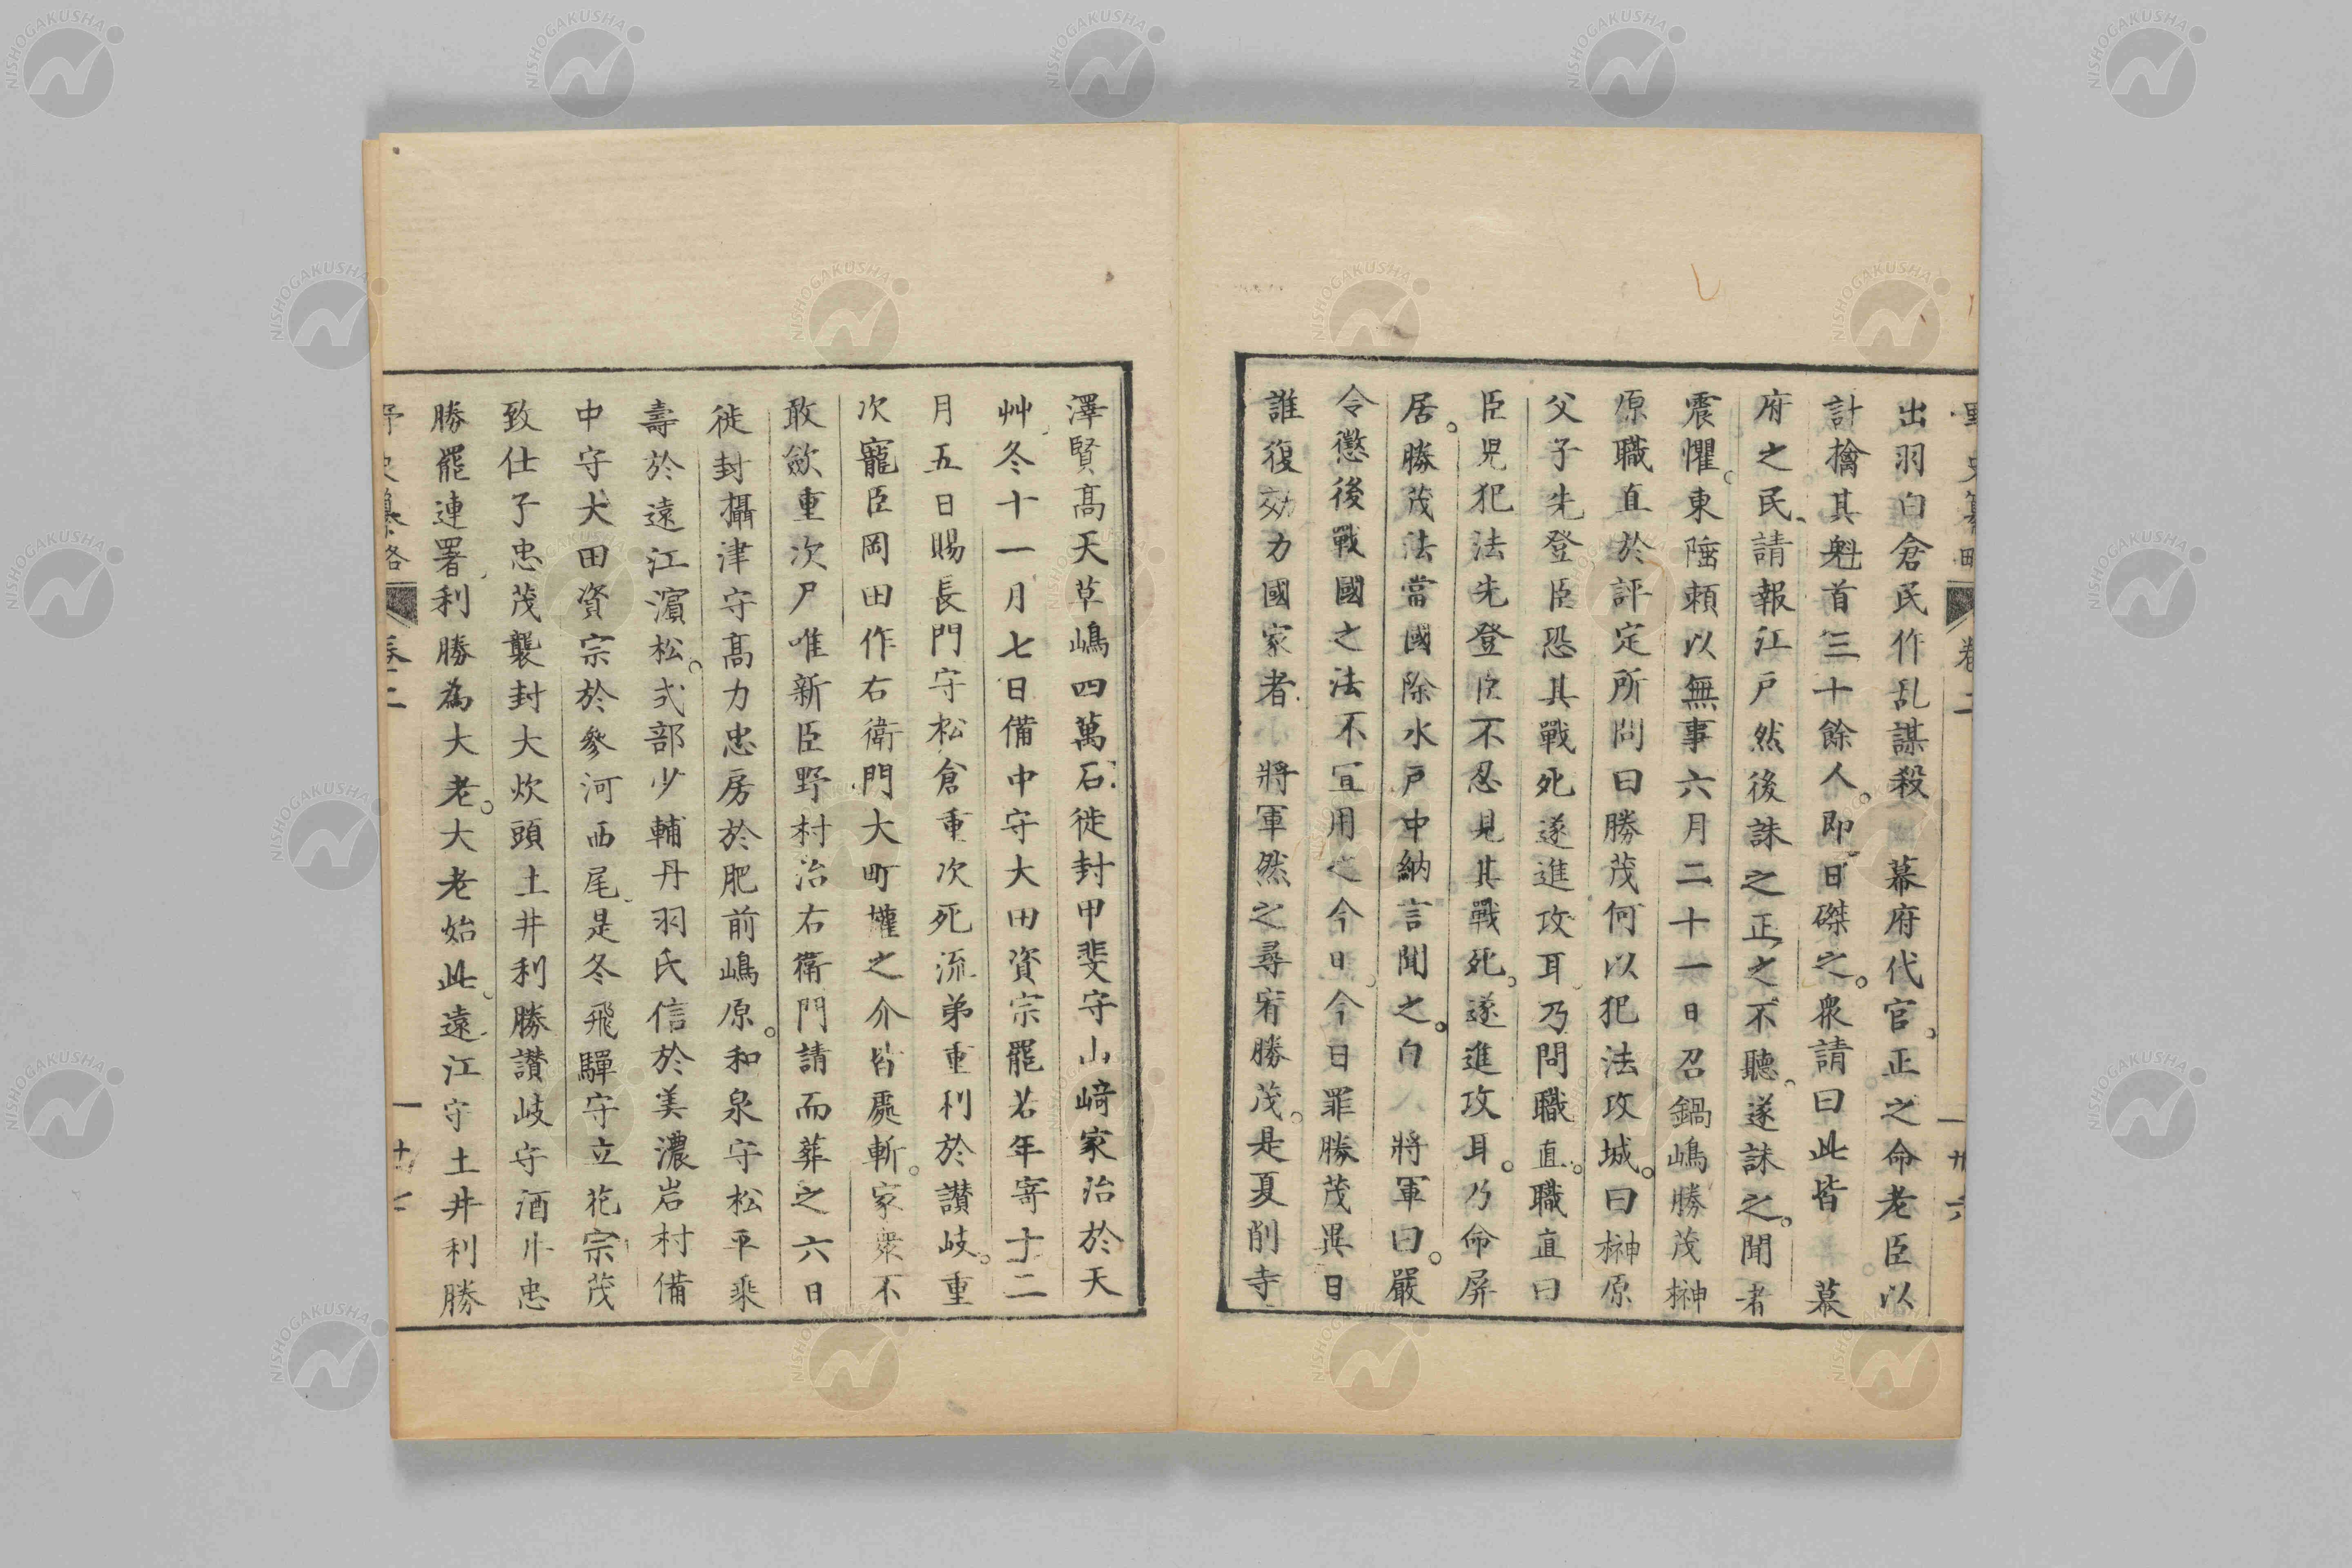 出羽白倉民作乱謀殺　幕府代官。正之命老臣以
計擒其魁首三十餘人。即日磔之。衆請曰此皆　幕
府之民、請報江戸然後誅之正之不聽。遂誅之。聞者
震懼。東陲賴以無事六月二十一日召鍋嶋勝茂榊
原職直於評定所問曰勝茂何以犯法攻城。曰榊原
父子先登臣恐其戰死遂進攻耳乃問職直。職直曰
臣児犯法先登臣不忍見其戰死。遂進攻耳。乃命屏
居。勝茂法當國除水戸中納言聞之。白　將軍曰。嚴
令懲後戰國之法不宜用之今日。今日罪勝茂異日
誰復効力國家者　將軍然之尋宥勝茂。是夏削寺
澤賢高天草嶋四萬石。徙封甲斐守山﨑家治於天
艸、冬十一月七日備中守大田資宗罷若年寄十二
月五日賜長門守松倉重次死流弟重利於讃岐。重
次寵臣岡田作右衛門大町權之介皆處斬。家衆不
敢斂重次尸唯新臣野村治右衛門請而葬之六日
徙封攝津守高力忠房於肥前嶋原。和泉守松平乗
壽於遠江濵松。式部少輔丹羽氏信於美濃岩村備
中守大田資宗於參河西尾、是冬飛騨守立花宗茂
致仕子忠茂襲封大炊頭土井利勝讃岐守酒井忠
勝罷連署、利勝為大老。大老始此。遠江守土井利勝